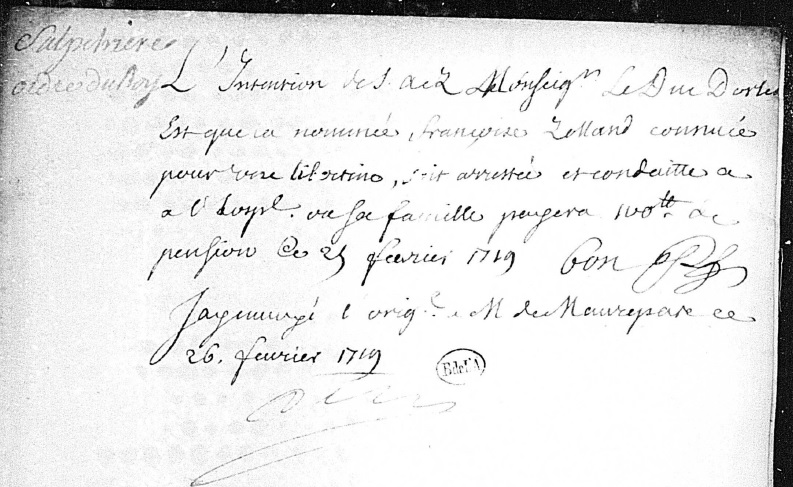 Salpetriere
ordre du Roy
L'Intention de S. A. R. Monseigr. Le Duc Dorle
Est que la nommée françoise Lolland connuée
pour une libertine, soit arrestée et conduitte a
a l'hopl. ou sa famille payera 100tt de
pension Ce 25 fevrier 1719 bon
Jay envoyé l'orig.l a M de Maurepas ce
26. fevrier 1719
B de l'A